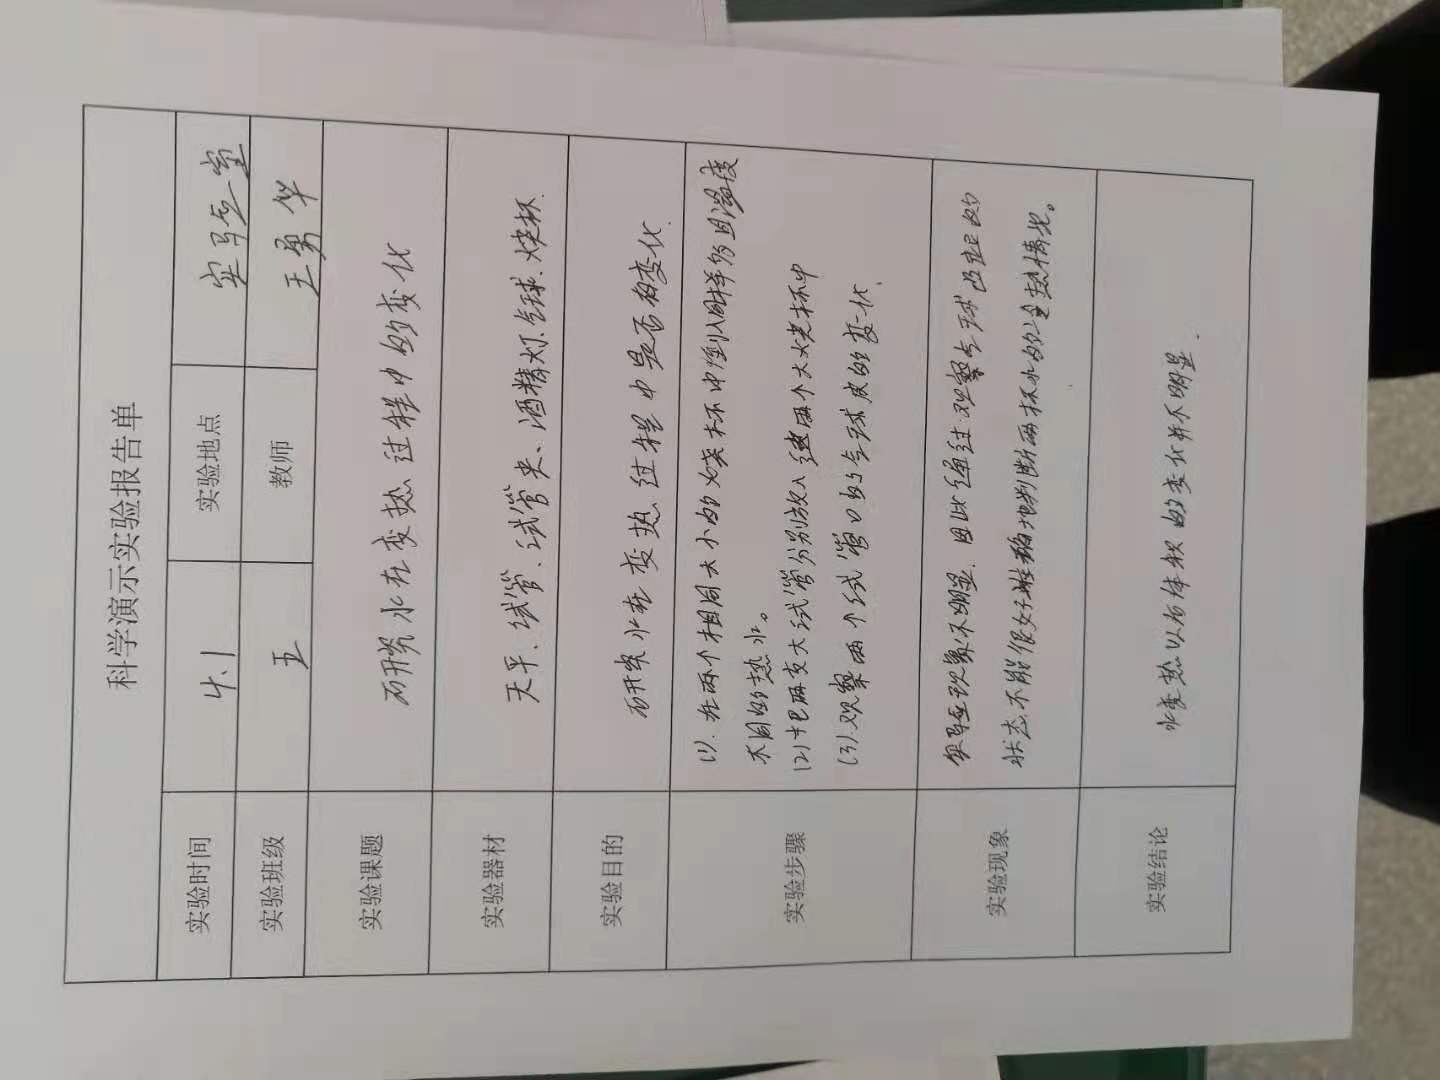 科学演示实验报告单
实验时间 4.1 实验地点 实验室
实验班级 五 教师 王勇华
实验课题 研究水在变热过程中的变化
实验器材 天平、试管、试管夹、酒精灯.气球.烧杯.
实验目的 研究水在变热过程中是否有变化.
实验步骤
(1).在两个相同大小的大烧杯中倒入同样多且温度
不同的热水。
(2)把两支大试管分别放入这两个大烧杯中
(3).观察两个试管口的气球皮的变化.
实验现象
实验现象不明显.因此通过观察气球凸起的
状态不能很好准确地判断两杯水的受热情况。
实验结论 水变热以后体积的变化并不明显.